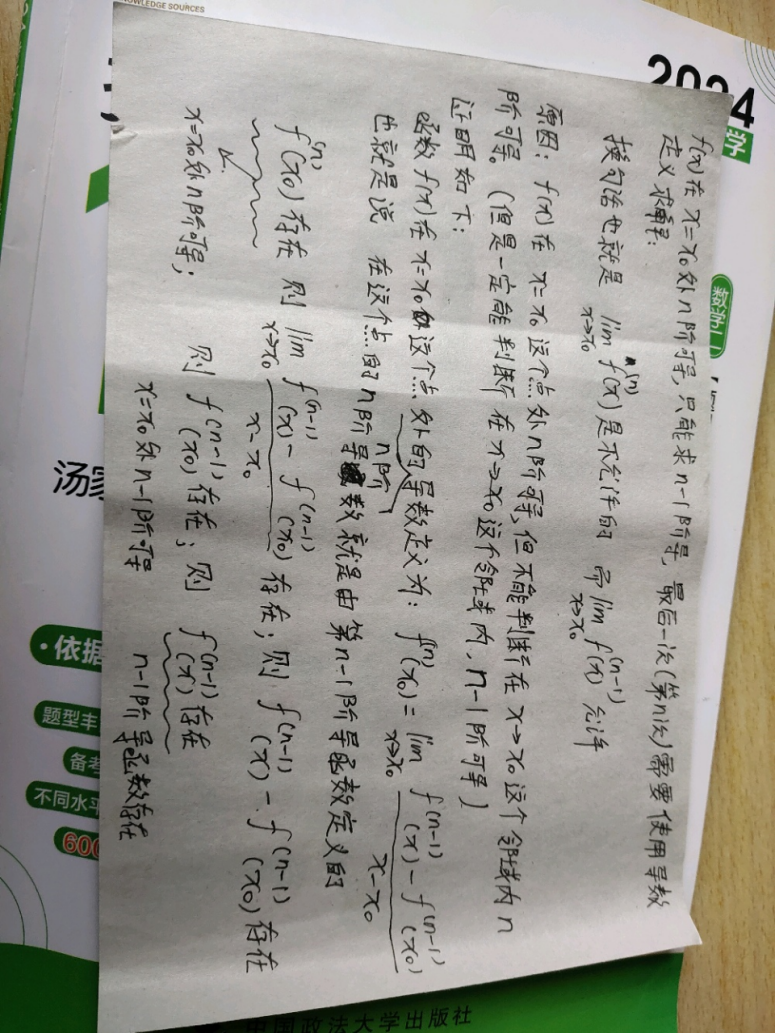 f(x)在x=x₀处n阶可导,只能求n-1阶导,最后一次(第n次)需要使用导数
定义求解:
换句话也就是 lim x→x₀ f⁽ⁿ⁾(x) 是不允许的 而 lim x→x₀ f⁽ⁿ⁻¹⁾(x) 允许
原因: f(x)在 x=x₀ 这个点处n阶可导,但不能判断在 x→x₀ 这个邻域内 n
阶可导。(但是一定能判断在 x→x₀ 这个邻域内,n-1阶可导)
证明如下:
函数 f(x) 在 x=x₀ 这个点处的n阶导数定义为: f⁽ⁿ⁾(x₀) = lim x→x₀ (f⁽ⁿ⁻¹⁾(x) - f⁽ⁿ⁻¹⁾(x₀))/(x-x₀)
也就是说 在这个点的n阶导数就是由第n-1阶导函数定义的
f⁽ⁿ⁾(x₀) 存在 则 lim x→x₀ (f⁽ⁿ⁻¹⁾(x) - f⁽ⁿ⁻¹⁾(x₀))/(x-x₀) 存在; 则 f⁽ⁿ⁻¹⁾(x) - f⁽ⁿ⁻¹⁾(x₀) 存在
x=x₀处n阶可导;
则 f⁽ⁿ⁻¹⁾(x₀) 存在; 则 f⁽ⁿ⁻¹⁾(x) 存在
x=x₀处n-1阶可导
n-1阶导函数存在
2024
数学(一)
汤家
·依据
题型丰
备考
不同水平
600
中国政法大学出版社
KNOWLEDGE SOURCES